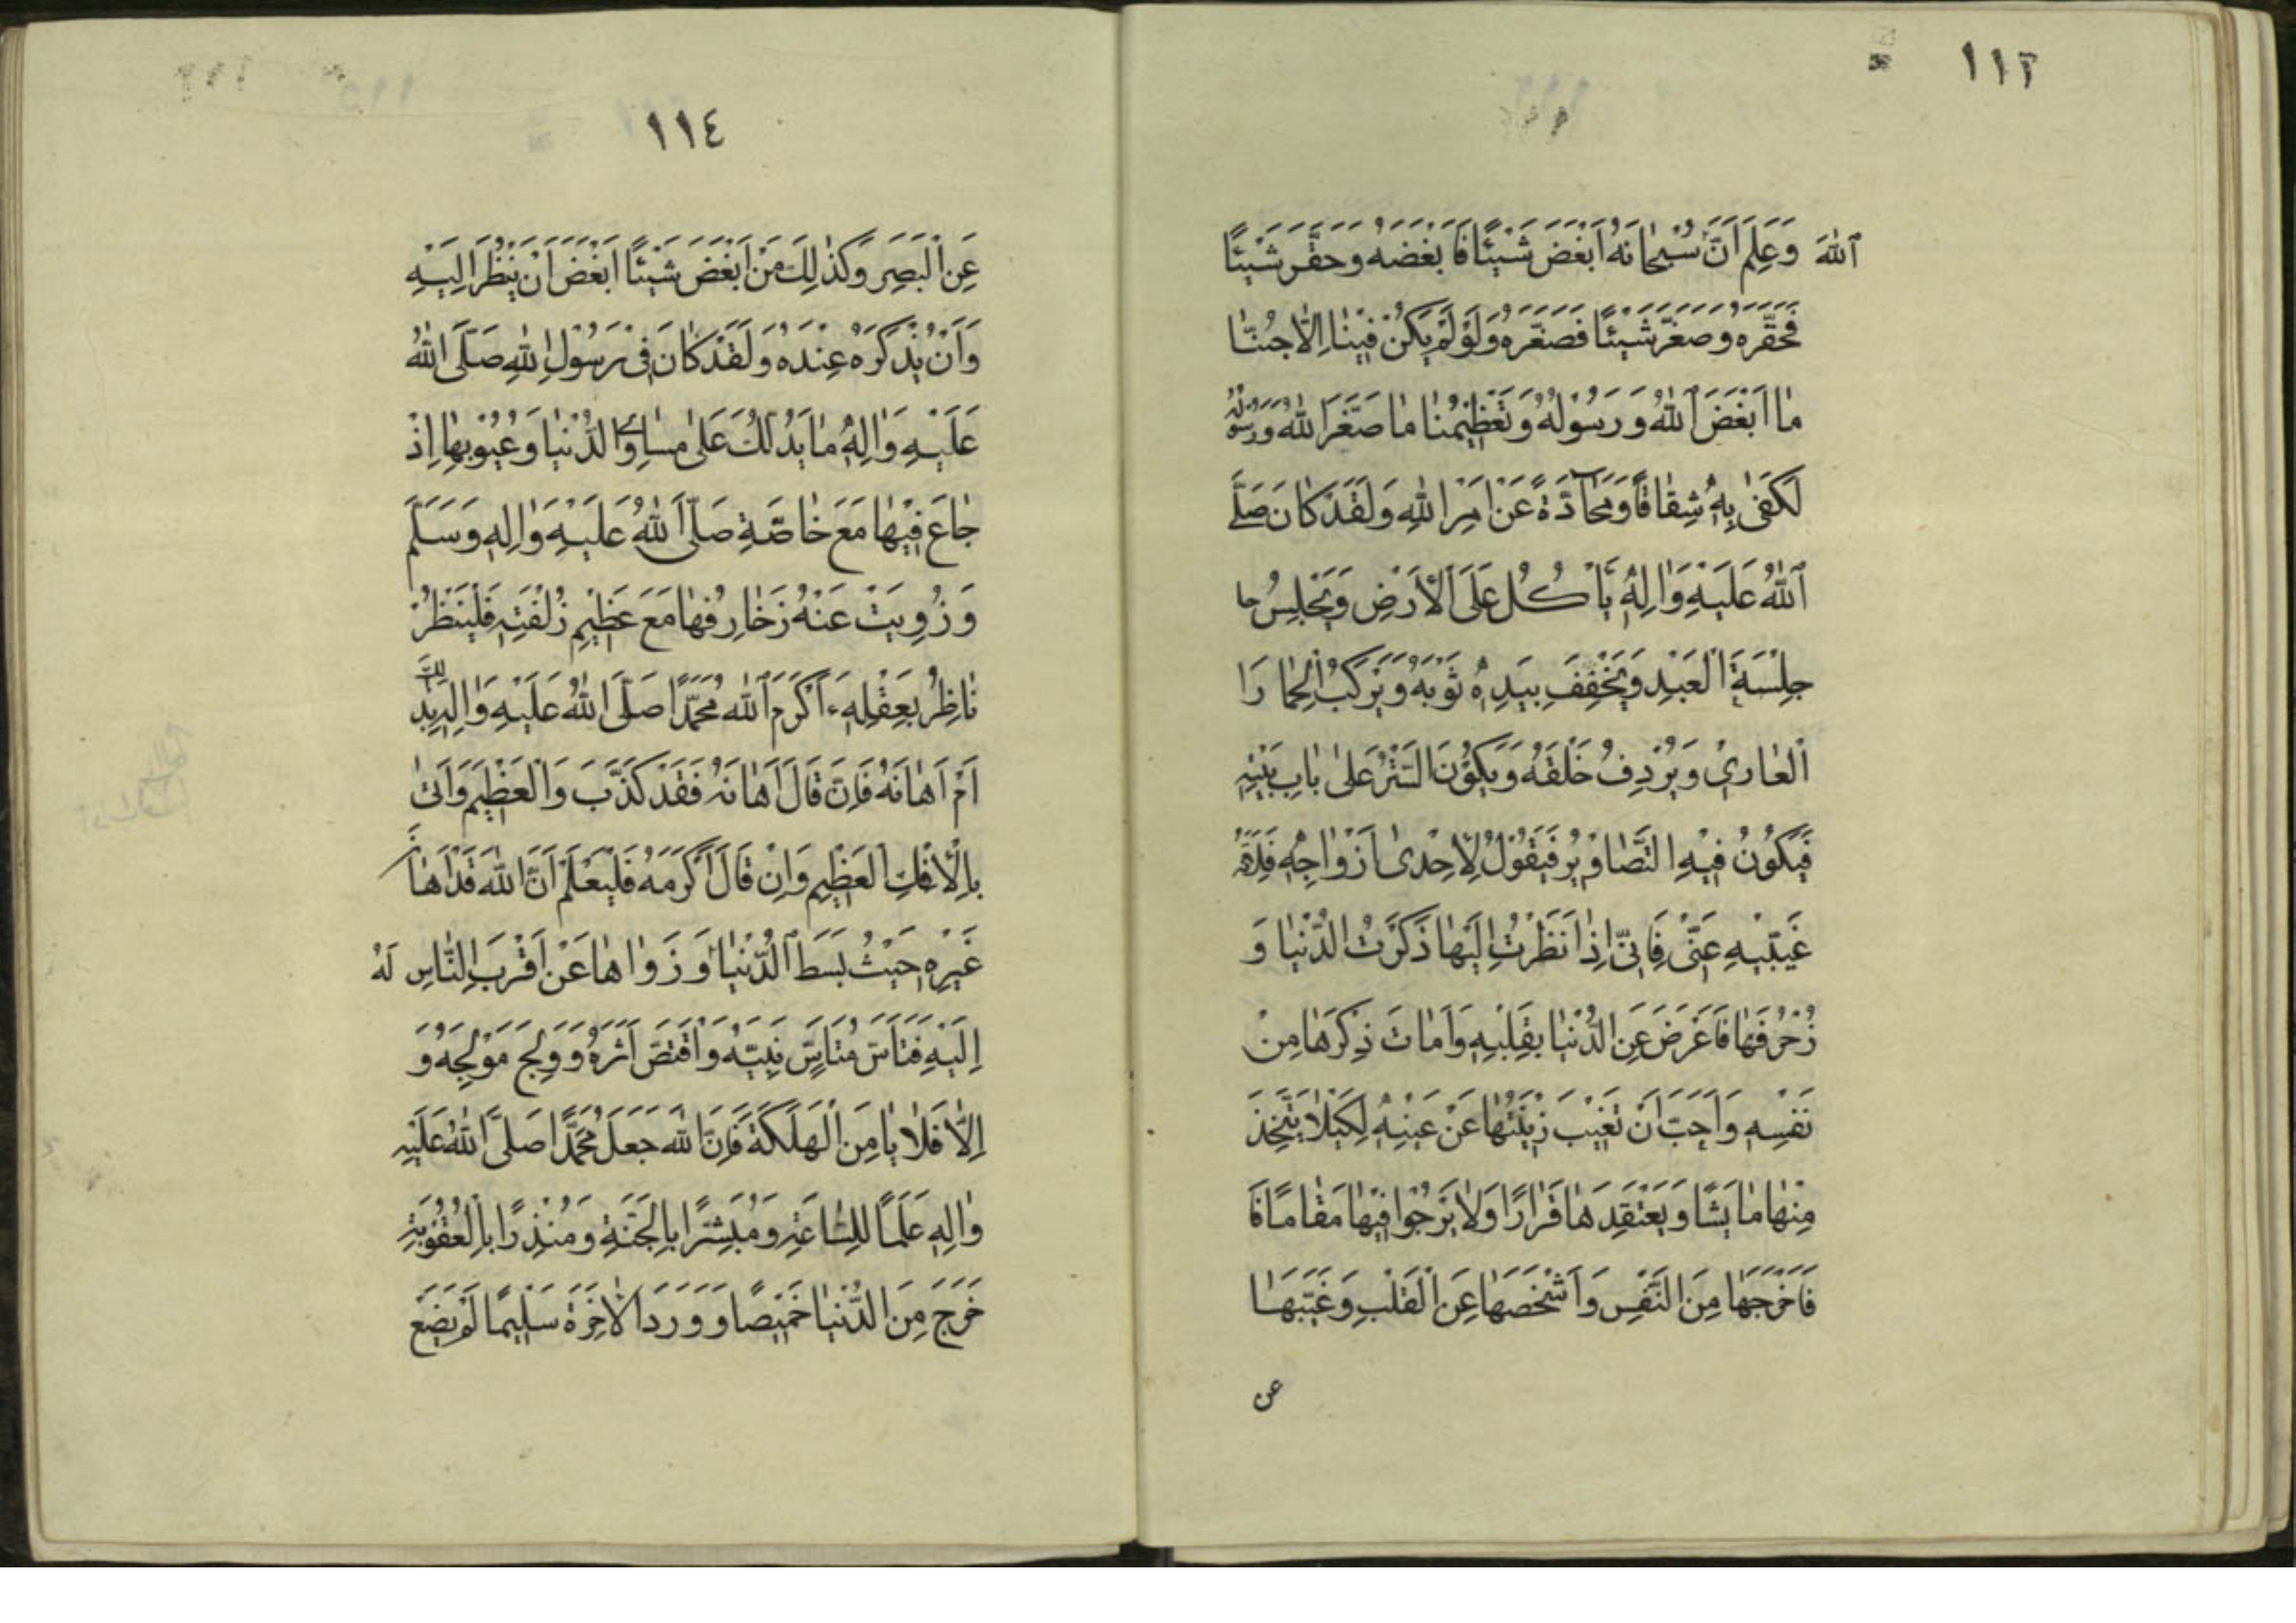 ١١٢
ٱللهَ وَعَلِمَ اَنَّ سُبْحٰانَهُ اَبْغَضَ شَيْئًا فَاَبْغَضَهُ وَحَقَّرَ شَيْئًا
فَحَقَّرَهُ وَصَغَّرَ شَيْئًا فَصَغَّرَهُ وَلَوْ لَمْ يَكُنْ فِيْنٰا اِلاّٰ حُبُّنٰا
مٰا اَبْغَضَ ٱللهُ وَرَسُوْلُهُ وَتَعْظِيْمُنٰا مٰا صَغَّرَ اللهُ وَرَسُوْلُهُ
لَكَفٰى بِهٖ شِقٰاقًا وَمُحٰآدَّةً عَنْ اَمْرِ اللهِ وَلَقَدْ كٰانَ صَلَّى
ٱللهُ عَلَيْهِ وَاٰلِهٖ يَأْكُلُ عَلَى ٱلْأَرْضِ وَيَجْلِسُ حا
جِلْسَةَ الْعَبْدِ وَيَخْصِفُ بِيَدِهٖ ثَوْبَهُ وَيَرْكَبُ الْحِمٰارَا
الْعٰارِيَ وَيُرْدِفُ خَلْفَهُ وَيَكُوْنُ السَّتْرُ عَلىٰ بٰابِ بَيْتِهٖ
فَيَكُوْنُ فِيْهِ التَّصٰاوِيْرُ فَيَقُوْلُ لِاِحْدىٰ اَزْوٰاجِهٖ
غَيِّبِيْهِ عَنِّيْ فَاِنِّيْ اِذٰا نَظَرْتُ اِلَيْهٰا ذَكَرْتُ الدُّنْيٰا وَ
زُخْرُفَهٰا فَاَعْرَضَ عَنِ الدُّنْيٰا بِقَلْبِهٖ وَاَمٰاتَ ذِكْرَهٰا مِنْ
نَفْسِهٖ وَاَحَبَّ اَنْ تَغِيْبَ زِيْنَتُهٰا عَنْ عَيْنِهٖ لِكَيْلاٰ يَتَّخِذَ
مِنْهٰا مٰا يَشًا وَيَعْتَقِدَهٰا قَرٰارًا وَلاٰ يَرْجُوْا فِيْهٰا مَقٰامًا فَا
فَاَخْرَجَهٰا مِنَ النَّفْسِ وَاَشْخَصَهٰا عَنِ الْقَلْبِ وَغَيَّبَهٰا
عن
١١٤
عَنِ الْبَصَرِ وَكَذٰلِكَ مَنْ اَبْغَضَ شَيْئًا اَبْغَضَ اَنْ يَنْظُرَ اِلَيْهِ
وَاَنْ يُذْكَرَهُ عِنْدَهُ وَلَقَدْ كٰانَ فِيْ رَسُوْلِ اللهِ صَلَّى اللهُ
عَلَيْهِ وَاٰلِهٖ مٰا يَدُلُّكَ عَلىٰ مَسٰاوِئِ الدُّنْيٰا وَعُيُوْبِهٰا اِذْ
جٰاعَ فِيْهٰا مَعَ خٰاصَّةِ صَلَّى اللهُ عَلَيْهِ وَاٰلِهٖ وَسَلَّمَ
وَزُوِيَتْ عَنْهُ زَخٰارِفُهٰا مَعَ عَظِيْمِ زُلْفَتِهٖ فَلْيَنْظُرْ
نٰاظِرٌ بِعَقْلِهٖ ءَاَكْرَمَ اللهُ مُحَمَّدًا صَلَّى اللهُ عَلَيْهِ وَاٰلِهٖ بِذٰلِكَ
اَمْ اَهٰانَهُ فَاِنْ قٰالَ اَهٰانَهُ فَقَدْ كَذَّبَ وَالْعَظِيْمِ وَاَتىٰ
بِالْاِفْكِ الْعَظِيْمِ وَاِنْ قٰالَ اَكْرَمَهُ فَلْيَعْلَمْ اَنَّ اللهَ قَدْ اَهٰانَ
غَيْرَهٖ حَيْثُ بَسَطَ ٱلدُّنْيٰا وَزَوٰاهٰا عَنْ اَقْرَبِ النّٰاسِ لَهُ
اِلَيْهِ فَتَاَسَّ مُتَاَسٍّ نَبِيَّهُ وَاقْتَصَّ اَثَرَهُ وَوَلَجَ مَوْلِجَهُ وَ
اِلاّٰ فَلاٰ يٰامِنَ الْهَلَكَةَ فَاِنَّ اللهَ جَعَلَ مُحَمَّدًا صَلَّى اللهُ عَلَيْهِ
وَاٰلِهٖ عَلَمًا لِلسّٰاعَةِ وَمُبَشِّرًا بِالْجَنَّةِ وَمُنْذِرًا بِالْعُقُوْبَةِ
خَرَجَ مِنَ الدُّنْيٰا خَمِيْصًا وَوَرَدَ الْاٰخِرَةَ سَلِيْمًا لَمْ يَضَعْ